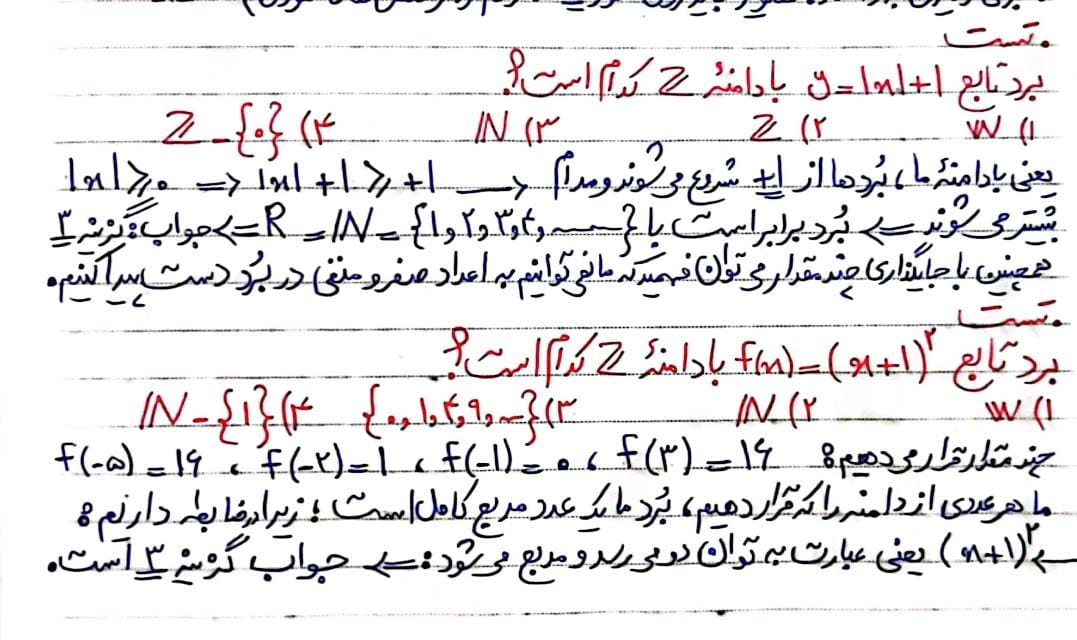 تست.
برد تابع y=|x|+1 با دامنهٔ ℤ کدام است؟
۱) W ۲) ℤ ۳) ℕ ۴) ℤ-{۰}
|x|⩾۰ => |x|+1⩾+1 → یعنی با دامنهٔ ما، بُردها از +۱ شروع می‌شوند و مدام
بیشتر می‌شوند => بُرد برابر است با R=ℕ={۱و۲و۳و۴و...} => جواب: گزینه ۳
همچنین با جایگذاری چند مقدار می‌توان فهمید که ما نمی‌توانیم به اعداد صفر و منفی در بُرد دست پیدا کنیم.
تست.
برد تابع f(x)=(x+1)² با دامنهٔ ℤ کدام است؟
۱) W ۲) ℕ ۳) {۰و۱و۴و۹و...} ۴) ℕ-{۱}
چند مقدار قرار می‌دهیم: f(۳)=۱۶ ، f(-۱)=۰ ، f(-۲)=۱ ، f(-۵)=۱۶
ما هر عددی از دامنه را که قرار دهیم، بُرد ما یک عدد مربع کامل است؛ زیرا در ضابطه داریم:
(x+1)² => یعنی عبارت به توان دو می‌رسد و مربع می‌شود: => جواب گزینه ۳ است.